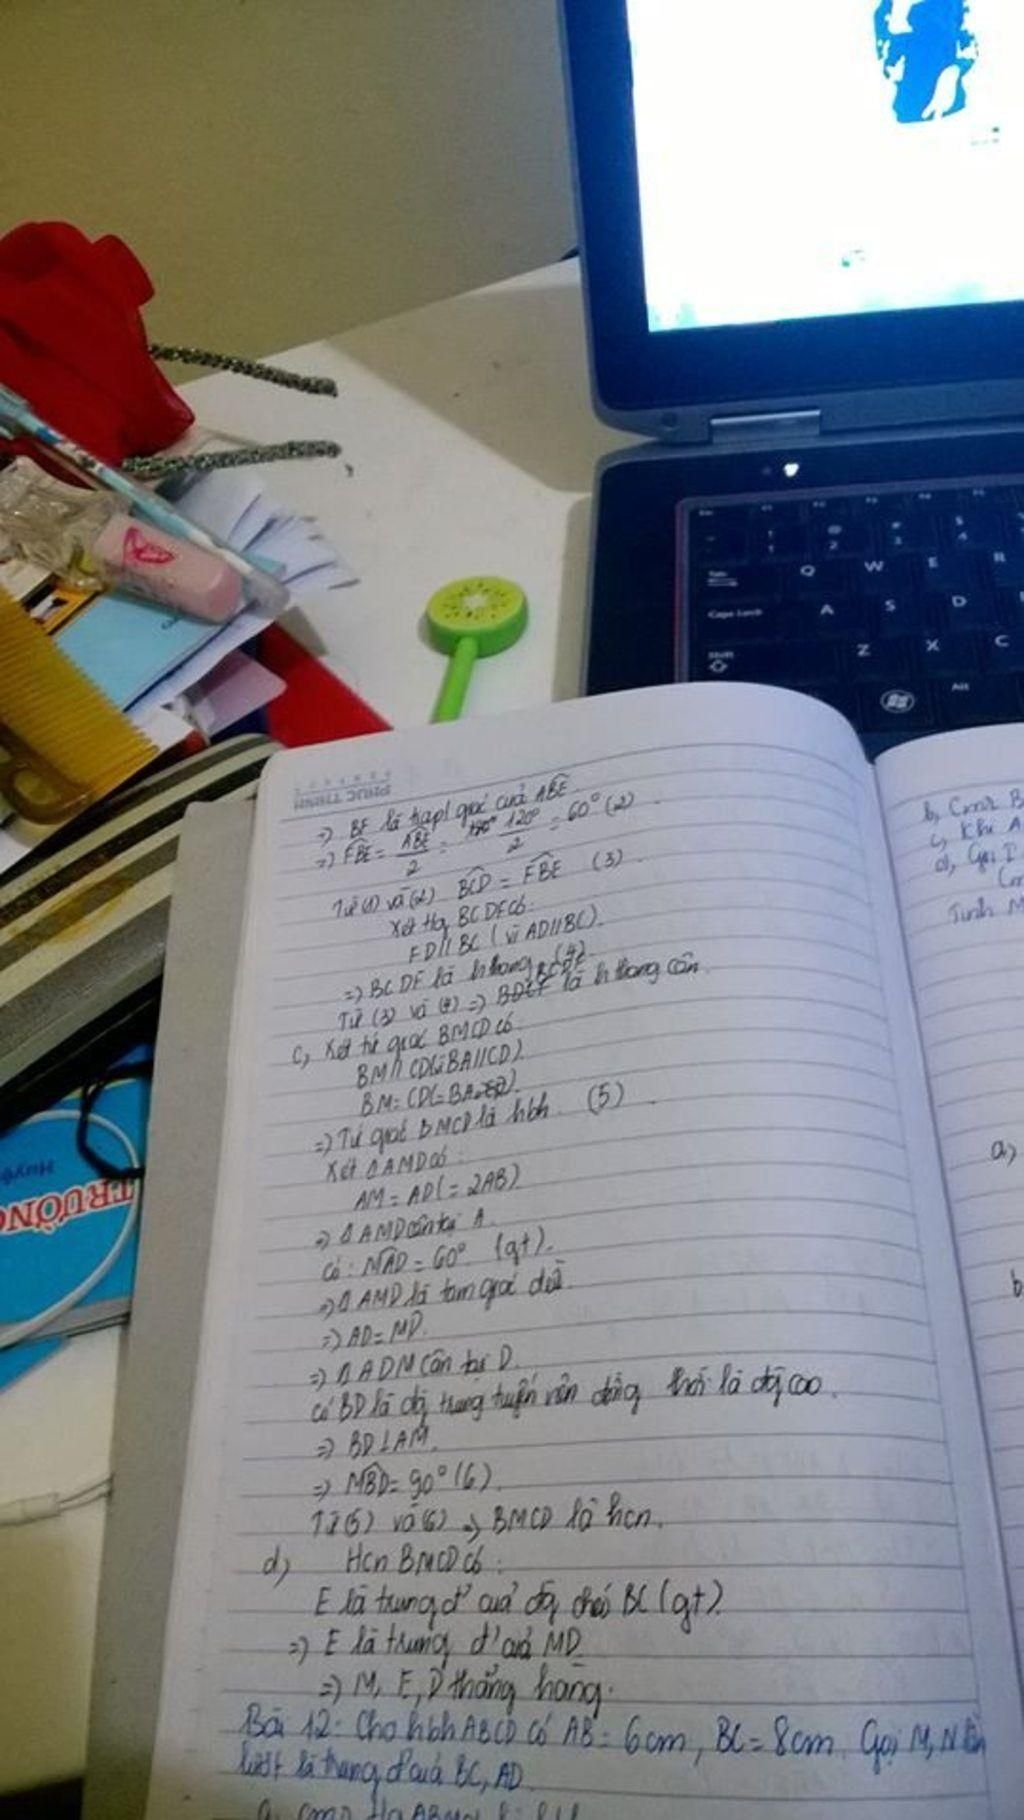 PHUC THINH
=> BF là tia p/giác của ABE
=> FBE = ABE/2 = 120°/2 = 60° (2)
Từ (1) và (2) BCD = FBE (3)
Xét tg BCDF có:
FD // BC (vì AD // BC)
=> BCDF là hthang (4)
Từ (3) và (4) => BCDF là hthang cân
c, Xét tứ giác BMCD có:
BM // CD (vì BA // CD)
BM = CD (= BA)
=> Tứ giác BMCD là hbh (5)
Xét Δ AMD có:
AM = AD (= 2AB)
=> Δ AMD cân tại A
có: MAD = 60° (gt).
=> Δ AMD là tam giác đều
=> AD = MD
=> Δ ADM cân tại D
có BD là đg trung tuyến nên đồng thời là đg cao.
=> BD ⊥ AM
=> MBD = 90° (6)
Từ (5) và (6) => BMCD là hcn.
d, Hcn BMCD có:
E là trung đ' của đg chéo BC (gt)
=> E là trung đ' của MD
=> M, E, D thẳng hàng.
Bài 12: Cho hbh ABCD có AB = 6cm, BC = 8cm. Gọi M, N lần
lượt là trung đ' của BC, AD
b, Cmr B
c, Khi A
d, Gọi I
Tính M
a,
b
TRƯỜNG
Huyện
Q W E R
Caps Lock A S D
Shift Z X C
Alt